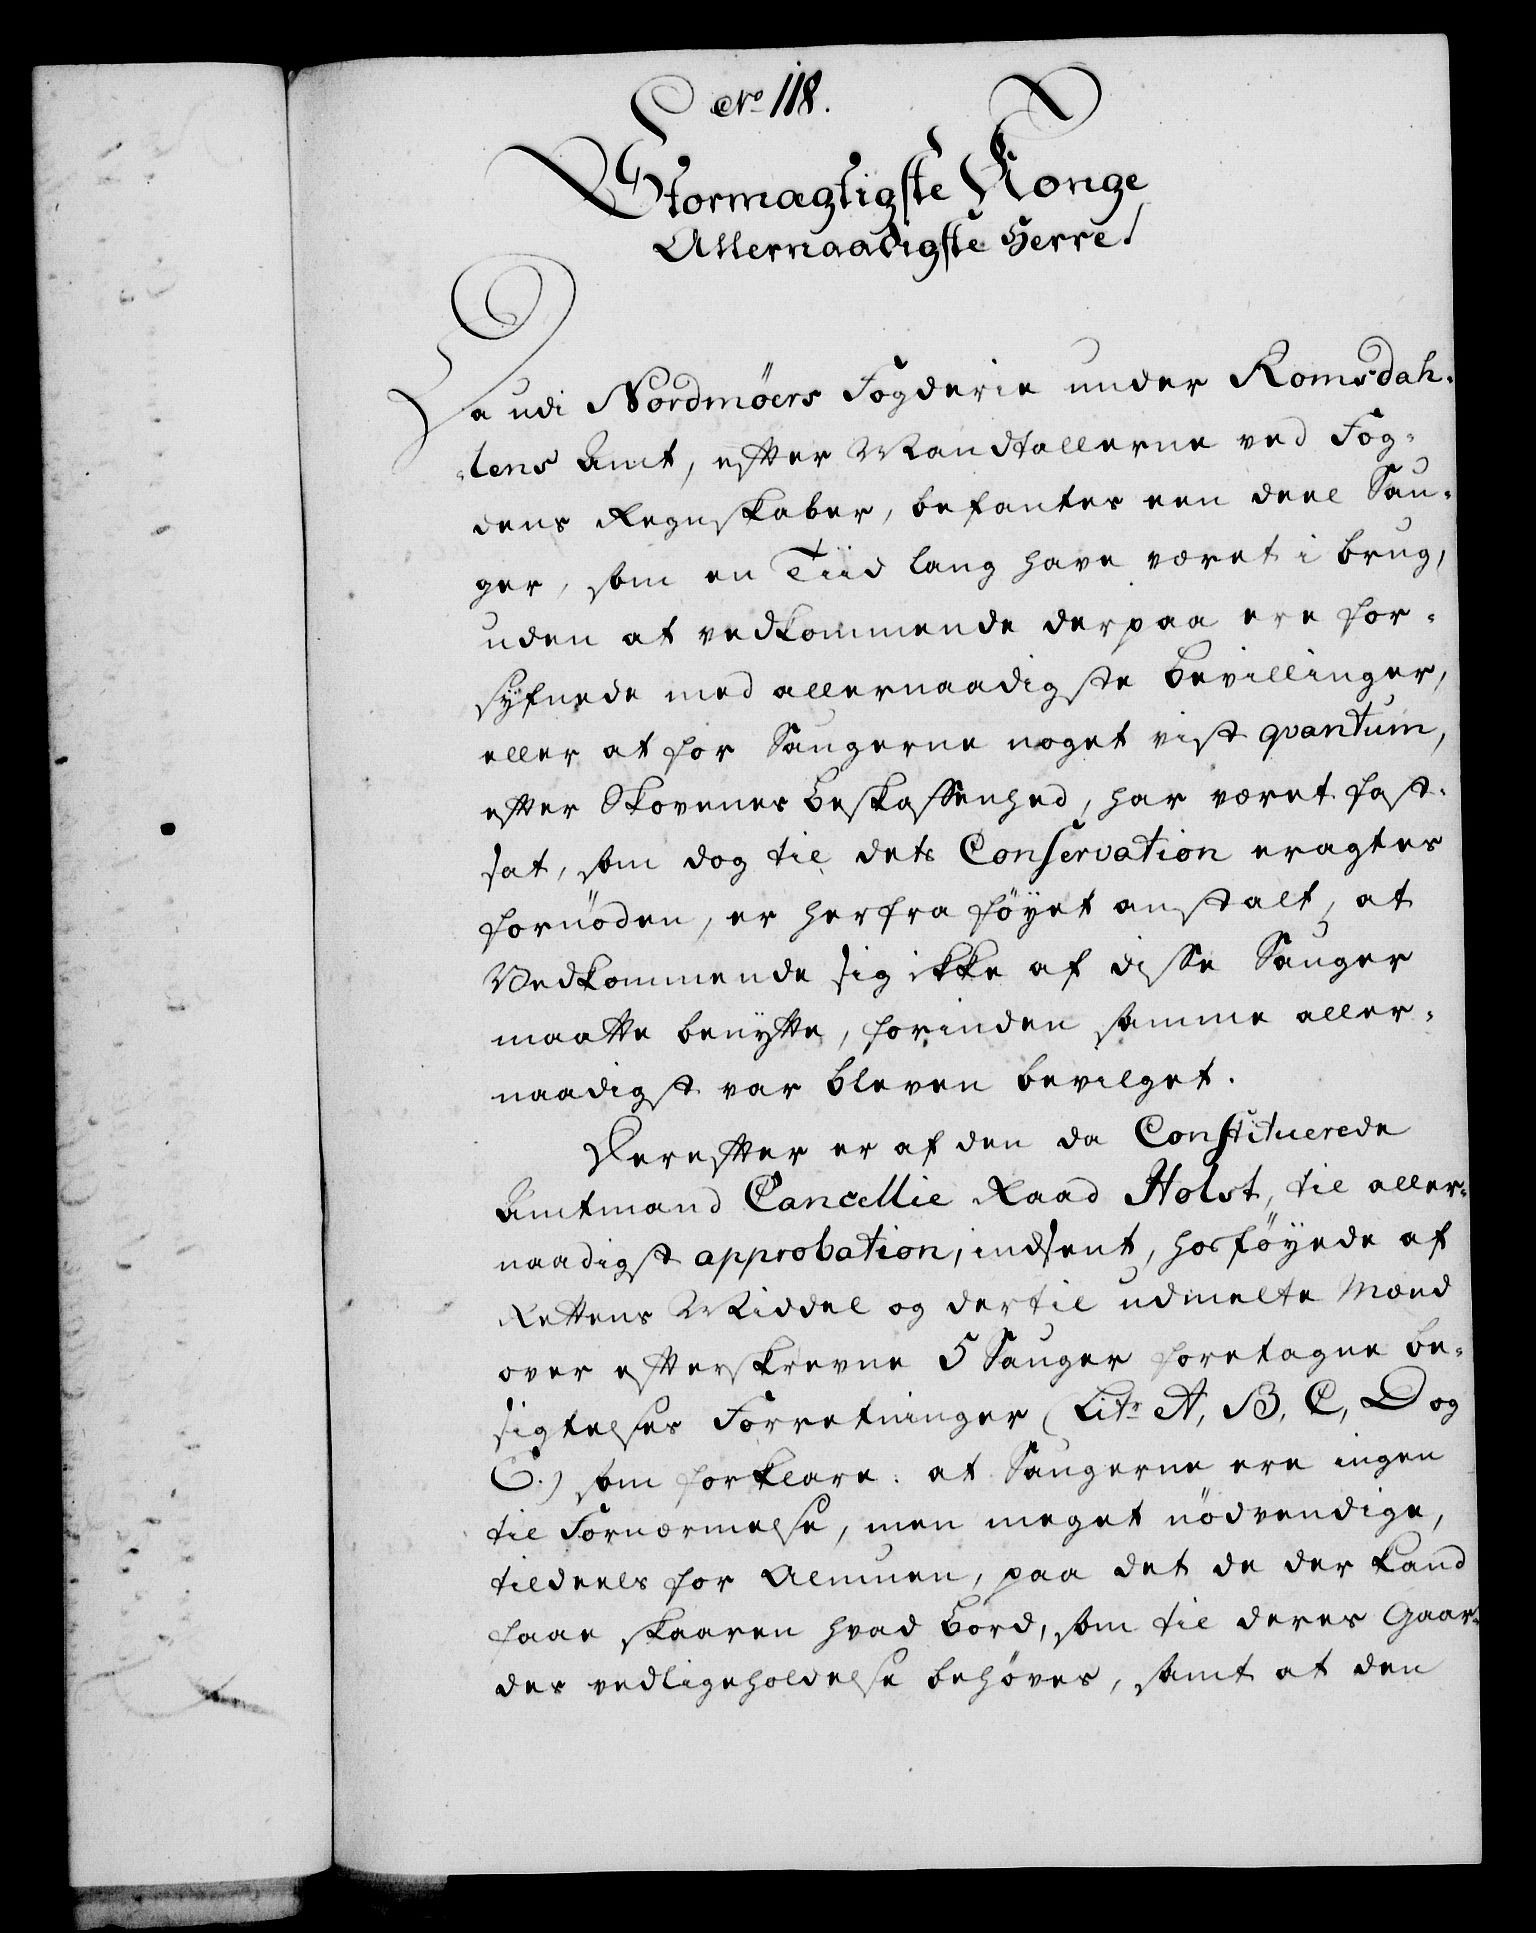 No 118.
Stormægtigste Konge
Allernaadigste Herre!
Da udi Nordmöers Fogderie under Romsdah-
lens Amt, efter Mandtallerne ved Fog-
dens Regnskaber, befantes een deel Sau-
ger, som en Tiid lang have været i brug,
uden at vedkommende derpaa ere for-
syfnede med allernaadigste Bevillinger,
eller at for Saugerne noget vist qvantum,
efter Skovenes Beskaffenhed, har været fast-
sat, som dog til dets Conservation eragtes
fornöden, er herfra föyet anstalt, at
Vedkommende sig ikke af disse Sauger
maatte benÿtte, forinden samme aller-
naadigst var bleven bevilget.
Derefter er af den da Constituerede
Amtmand Cancellie Raad Holst, til aller-
naadigst approbation, indsent, hosföyede af
Rettens Middel og dertil udmelte Mænd
over efterskrevne 5 Sauger foretagne be-
sigtelses Forretninger (Litr A, B, C, D og
E.) som forklare: at Saugerne ere ingen
til Fornærmelse, men meget nödvendige,
tildeels for Almuen, paa det de der kand
faae skaaren hvad Bord, som til deres Gaar-
des vedligeholdelse behöves, samt at den